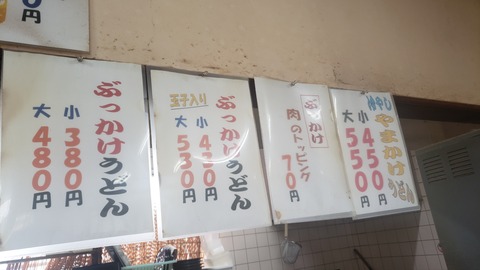 0円
ぶっかけうどん
小380円
大480円
ぶっかけうどん
玉子入り
小430円
大530円
ぶっかけ
肉のトッピング
70円
冷やし
やまかけうどん
小450円
大550円